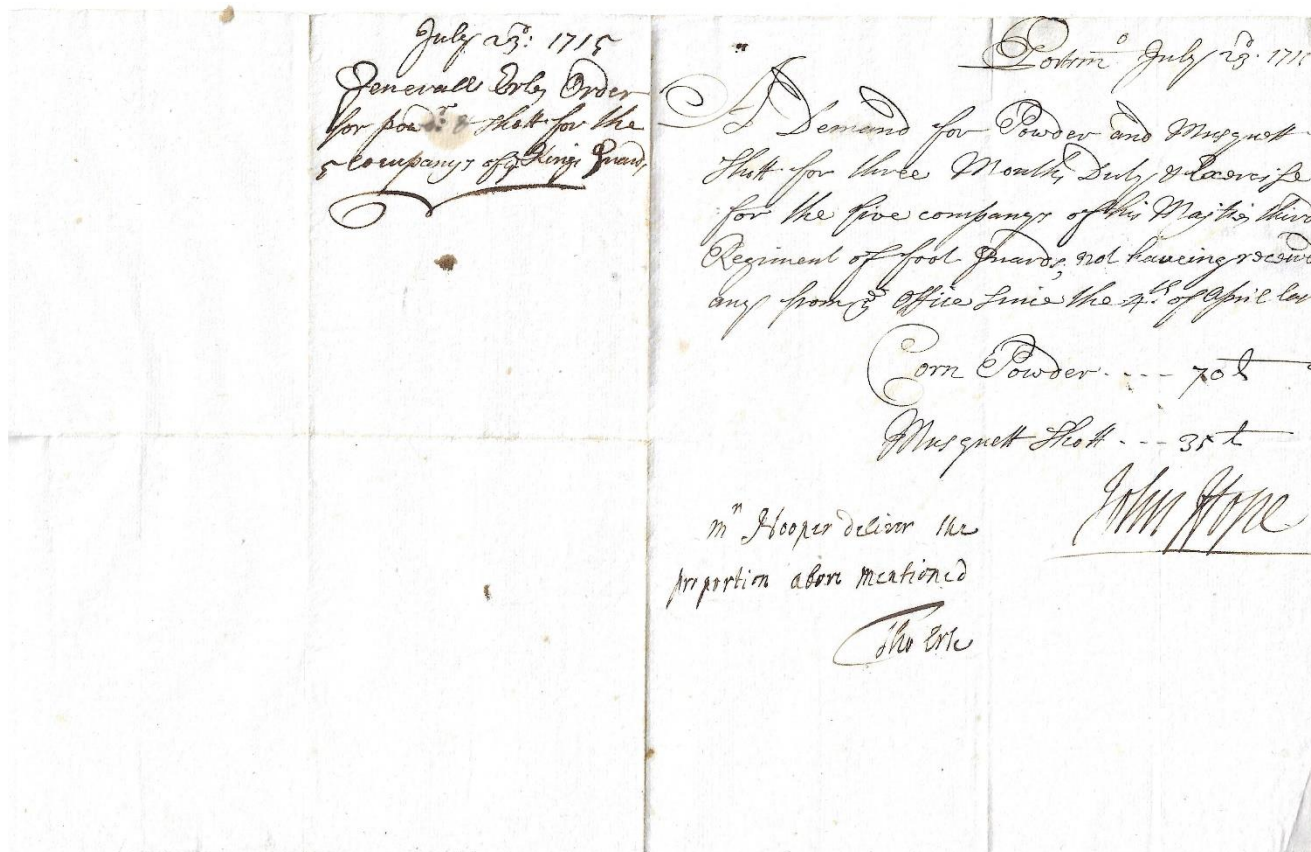 July 23d: 1715
Generall Erles Order
for powdr & Shott for the
5 Companys of ye Kings Guards
Portsmo July 23d. 171
A Demand for Powder and Musquett
Shott for three Months Duty & Exercise
for the five companys of his Majties third
Regiment of foot Guards, not haveing receivd
any from ye Office Since the 4th of April la
Corn Powder .... 70 l
Musquett Shott ... 35 l
John Hope
mr Hooper deliver the
proportion above mentioned
Tho Erle